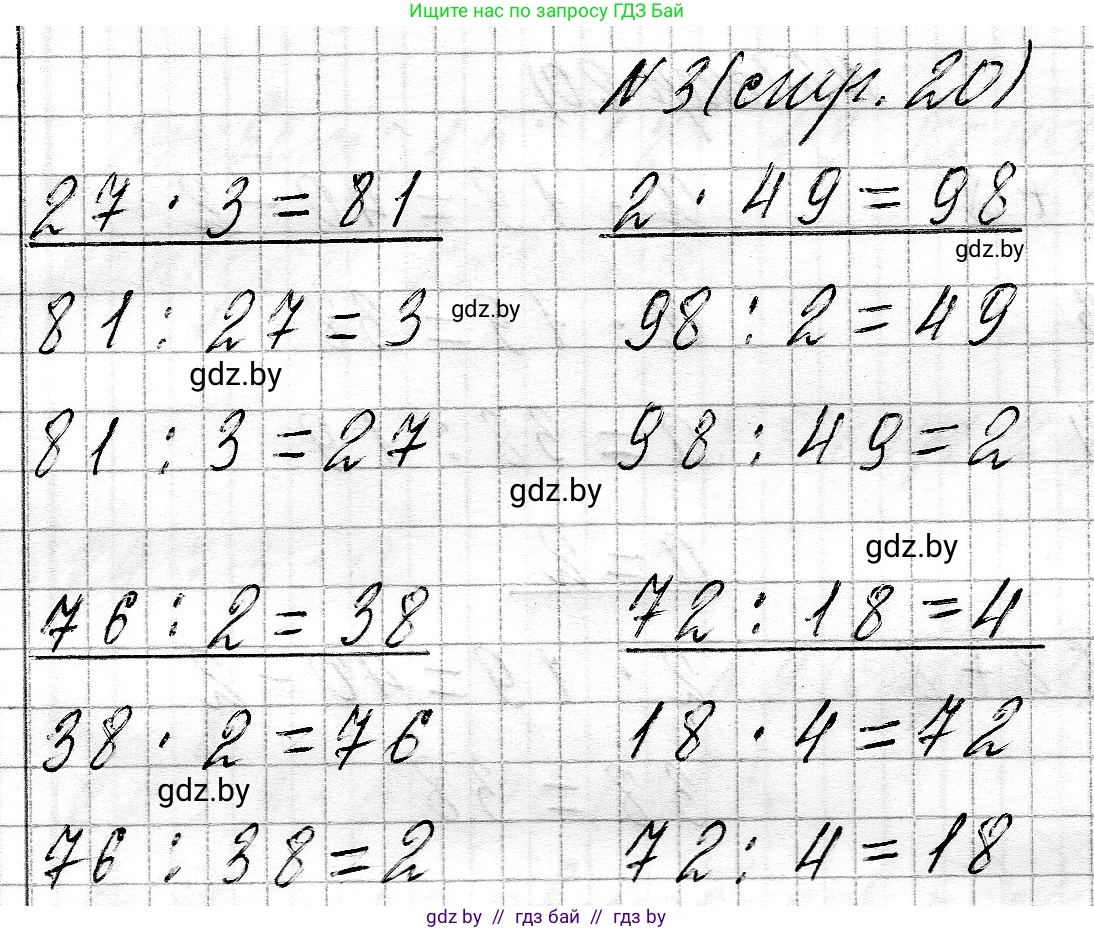 Ищите нас по запросу ГДЗ Бай
№ 3 (стр. 20)
27 · 3 = 81
2 · 49 = 98
gdz.by
81 : 27 = 3
gdz.by
98 : 2 = 49
gdz.by
81 : 3 = 27
98 : 49 = 2
gdz.by
gdz.by
76 : 2 = 38
72 : 18 = 4
38 · 2 = 76
18 · 4 = 72
gdz.by
76 : 38 = 2
72 : 4 = 18
gdz by // гдз бай // гдз by